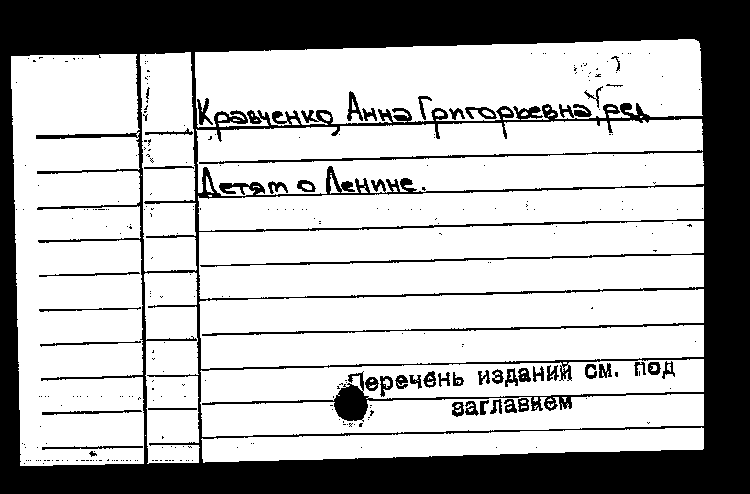 Кравченко, Анна Григорьевна, ред.
Детям о Ленине.
Перечень изданий см. под
заглавием